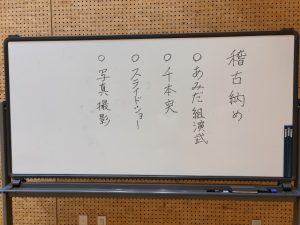 稽古納め
○あみだ組演武
○千本突
○スライドショー
○写真撮影